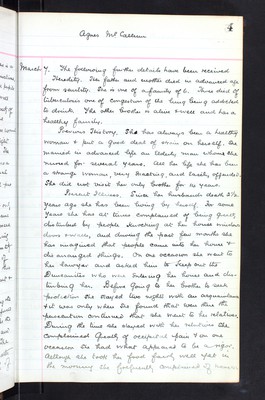 4
Agnes McCallum
March 7. The following further details have been received
Heredity. Her father and mother died in advanced age
from senility. She is one of a family of 6. Three died of
tuberculosis one of congestion of the lung being addicted
to drink. The other brother is alive & well and has a
healthy family.
Previous History. She has always been a healthy
woman & put a good deal of strain on herself. She
married in advanced life an elderly man whom she
nursed for several years. All her life she has been
a strange woman, very exacting, and easily offended.
She did not visit her only brother for 14 years.
Present Illness. Since her husband's death 5½
years ago she has been living by herself. For some
years she has at times complained of being greatly
disturbed by people knocking at her house windows
doors & walls, and during the past few months she
has imagined that people came into her house &
disarranged things. On one occasion she went to
her lawyer and asked him to seek out the
who was entering her house and dis-
turbing her. Before going to her brother to seek
protection she stayed two nights with an acquaintance
& it was only when she found that even there the
persecution continued that she went to her relatives.
During the time she stayed with her relatives she
complained greatly of occipital pain & on one
occasion she had what appeared to be a rigor.
she took her food fairly well yet in
the morning she frequently complained of